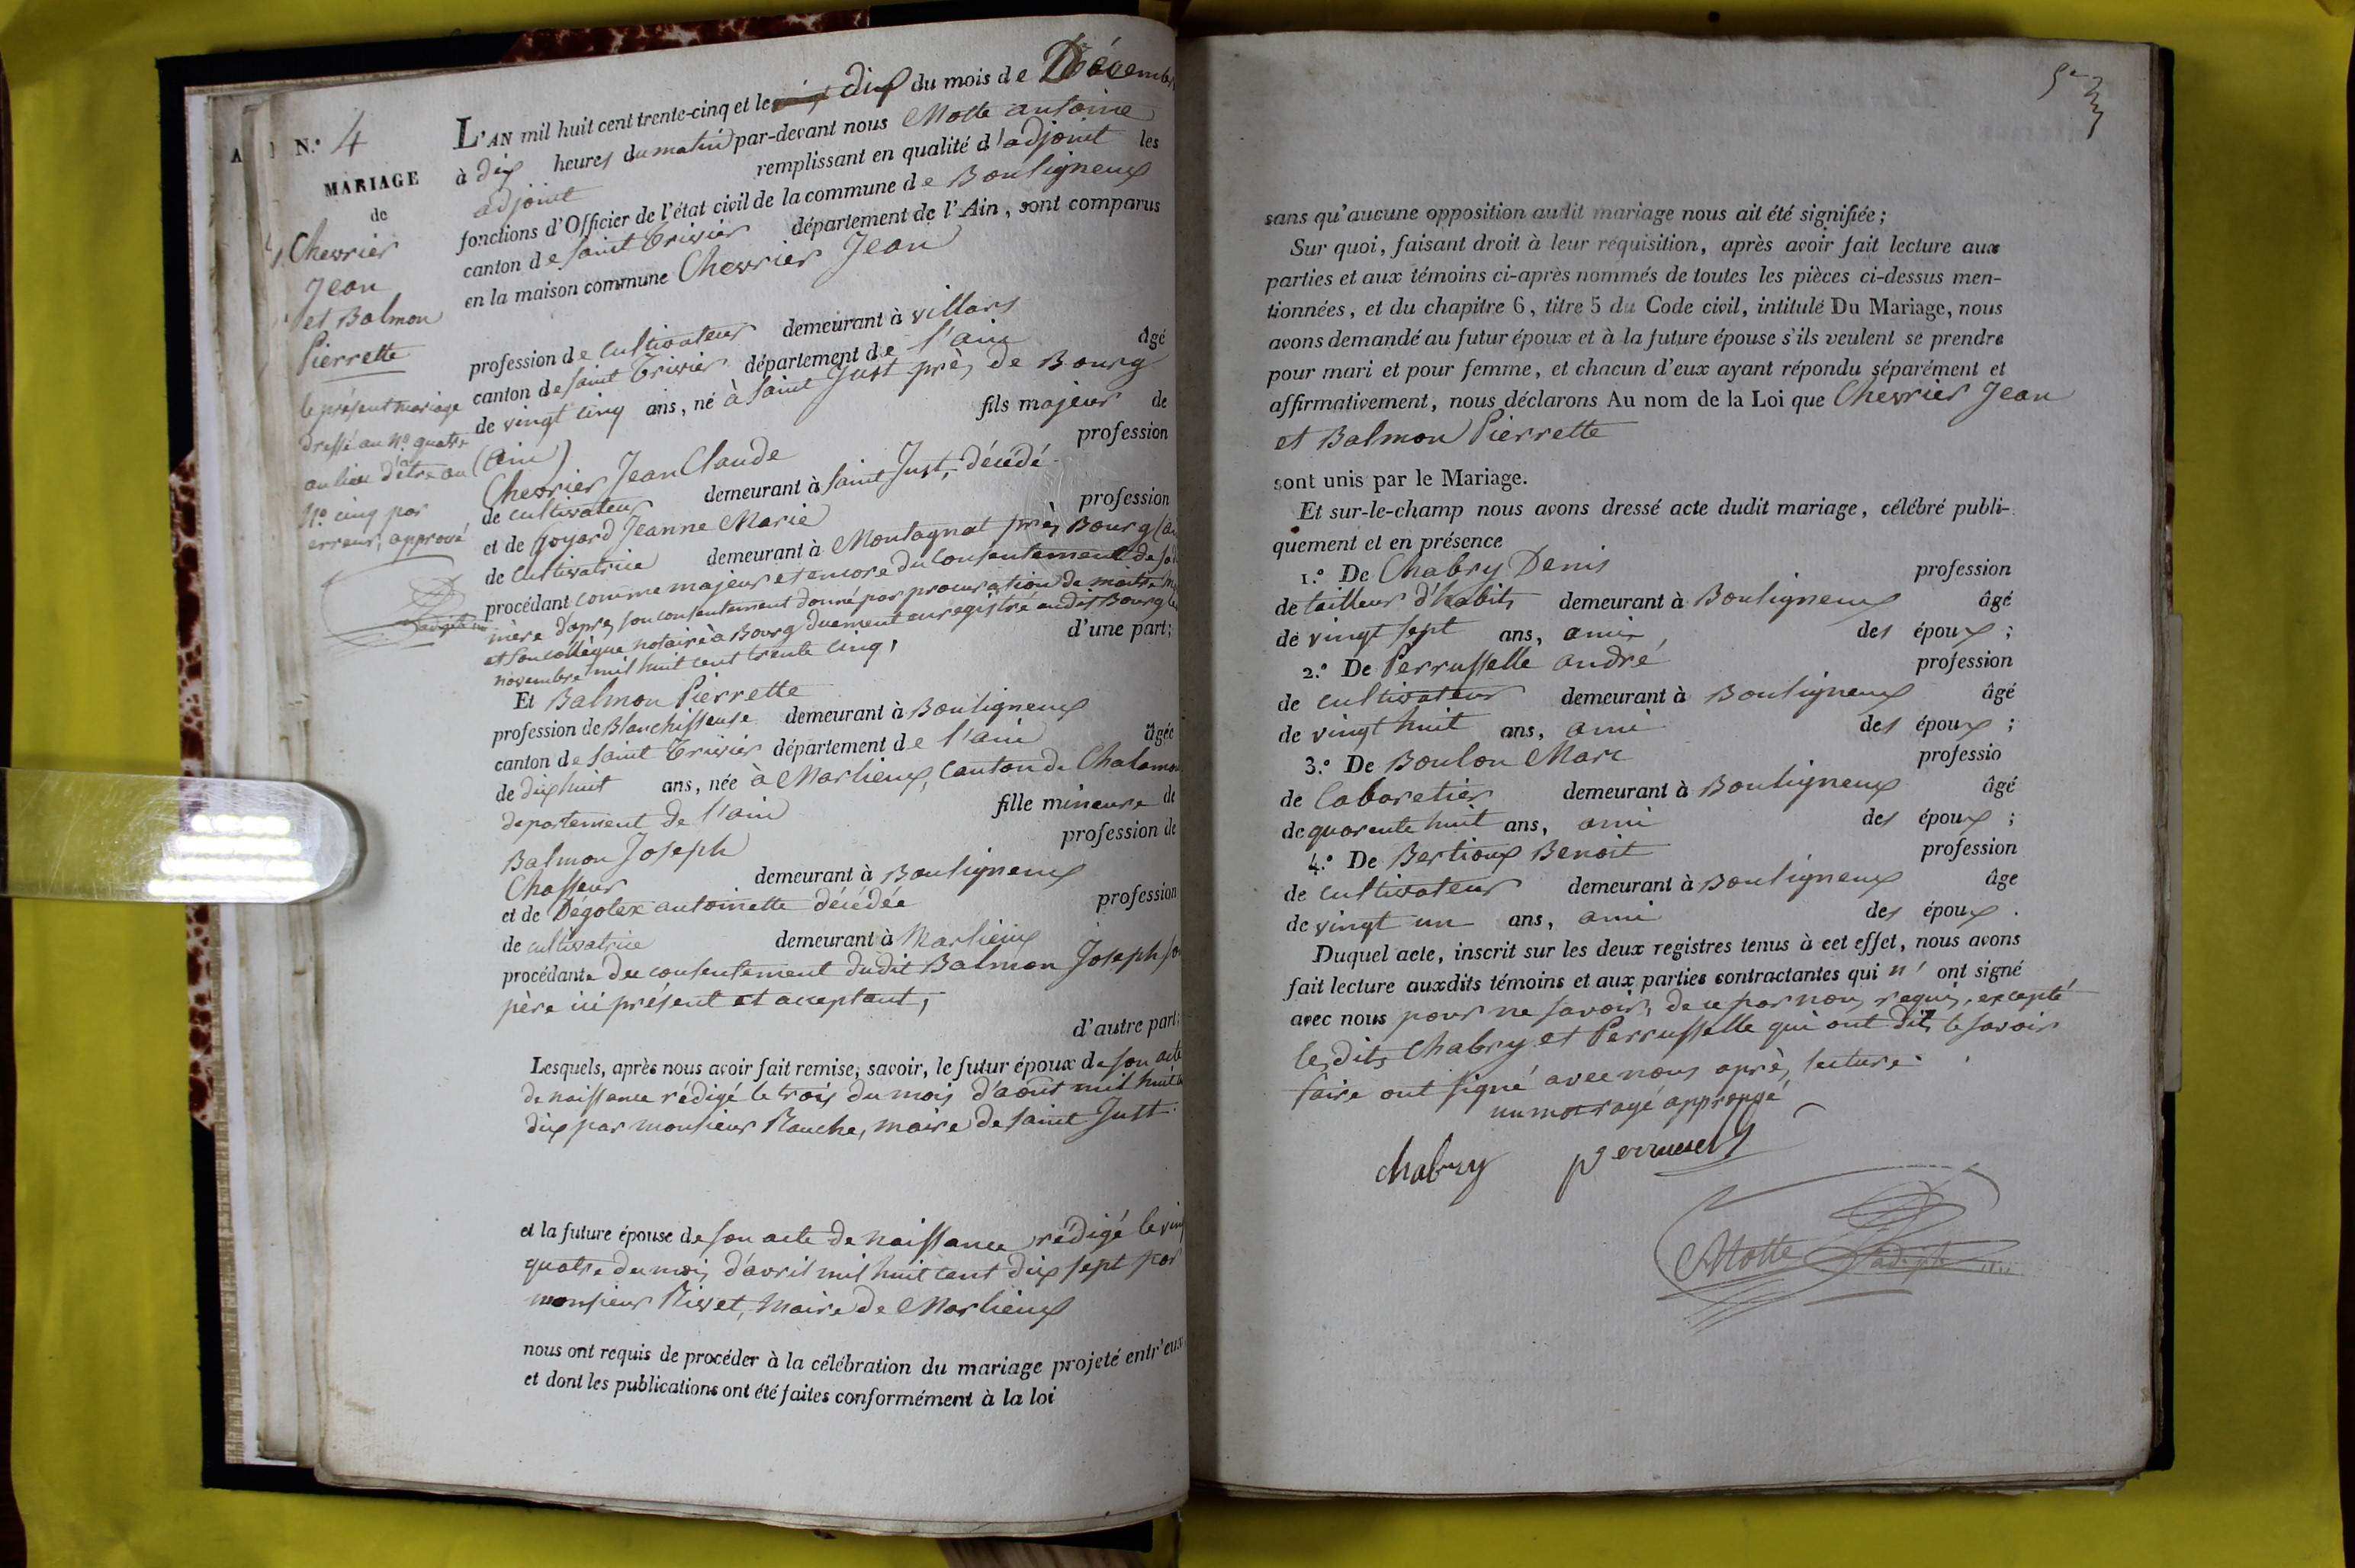 N.° 4
MARIAGE
de
Chevrier
Jean
et Balmon
Pierrette
le présent mariage
dressé au N.° quatre
au lieu d'être au
N.° cinq par
erreur, approuvé
L'AN mil huit cent trente-cinq et le dix du mois de Décembre
à dix heures du matin par-devant nous Motte antoine
adjoint remplissant en qualité d'adjoint les
fonctions d'Officier de l'état civil de la commune de Bouligneux
canton de saint Trivier département de l'Ain, sont comparus
en la maison commune Chevrier Jean
profession de cultivateur demeurant à villars
canton de saint Trivier département de l'ain âgé
de vingt cinq ans, né à saint Just près de Bourg
(ain) fils majeur de
Chevrier Jean Claude profession
de cultivateur demeurant à saint Just, décédé
et de Goyard Jeanne Marie profession
de cultivatrice demeurant à Montagnat près Bourg
procédant comme majeur et encore du consentement de sa
mère d'après son consentement donné par procuration de maitre
et son collègue notaire à Bourg duement enregistré audit Bourg le
novembre mil huit cent trente cinq, d'une part;
Et Balmon Pierrette
profession de Blanchisseuse demeurant à Bouligneux
canton de saint Trivier département de l'ain âgée
de dix huit ans, née à Marlieux, canton de Chalamon
departement de l'ain fille mineure de
Balmon Joseph profession de
Chasseur demeurant à Bouligneux
et de Dégolex antoinette décédée profession
de cultivatrice demeurant à Marlieux
procédante du consentement dudit Balmon Joseph son
père ici présent et acceptant,
d'autre part;
Lesquels, après nous avoir fait remise, savoir, le futur époux de son acte
de naissance rédigé le trois du mois d'aout mil huit
dix par monsieur Rauche, maire de saint Just
et la future épouse de son acte de naissance rédigé le vingt
quatre du mois d'avril mil huit cent dix sept par
monsieur Rivet, maire de Marlieux
nous ont requis de procéder à la célébration du mariage projeté entr'eux
et dont les publications ont été faites conformément à la loi
sans qu'aucune opposition audit mariage nous ait été signifiée;
Sur quoi, faisant droit à leur réquisition, après avoir fait lecture aux
parties et aux témoins ci-après nommés de toutes les pièces ci-dessus men-
tionnées, et du chapitre 6, titre 5 du Code civil, intitulé Du Mariage, nous
avons demandé au futur époux et à la future épouse s'ils veulent se prendre
pour mari et pour femme, et chacun d'eux ayant répondu séparément et
affirmativement, nous déclarons Au nom de la Loi que Chevrier Jean
et Balmon Pierrette
sont unis par le Mariage.
Et sur-le-champ nous avons dressé acte dudit mariage, célébré publi-
quement et en présence
1.° De Chabry Denis profession
de tailleur d'habits demeurant à Bouligneux âgé
de vingt sept ans, ami, des époux;
2.° De Perrusselle andré profession
de cultivateur demeurant à Bouligneux âgé
de vingt huit ans, ami des époux;
3.° De Boulon Marc professio
de Cabaretier demeurant à Bouligneux âgé
de quarente huit ans, ami des époux;
4.° De Bertioux Benoit profession
de cultivateur demeurant à Bouligneux âge
de vingt un ans, ami des époux.
Duquel acte, inscrit sur les deux registres tenus à cet effet, nous avons
fait lecture auxdits témoins et aux parties contractantes qui n'ont signé
avec nous pour ne savoir, de ce par nous requis, excepté
lesdits Chabry et Perrusselle qui ont dit, le savoir
faire ont signé avec nous après lecture.
un mot rayé approuvé
chabry perrusel
Motte adjt